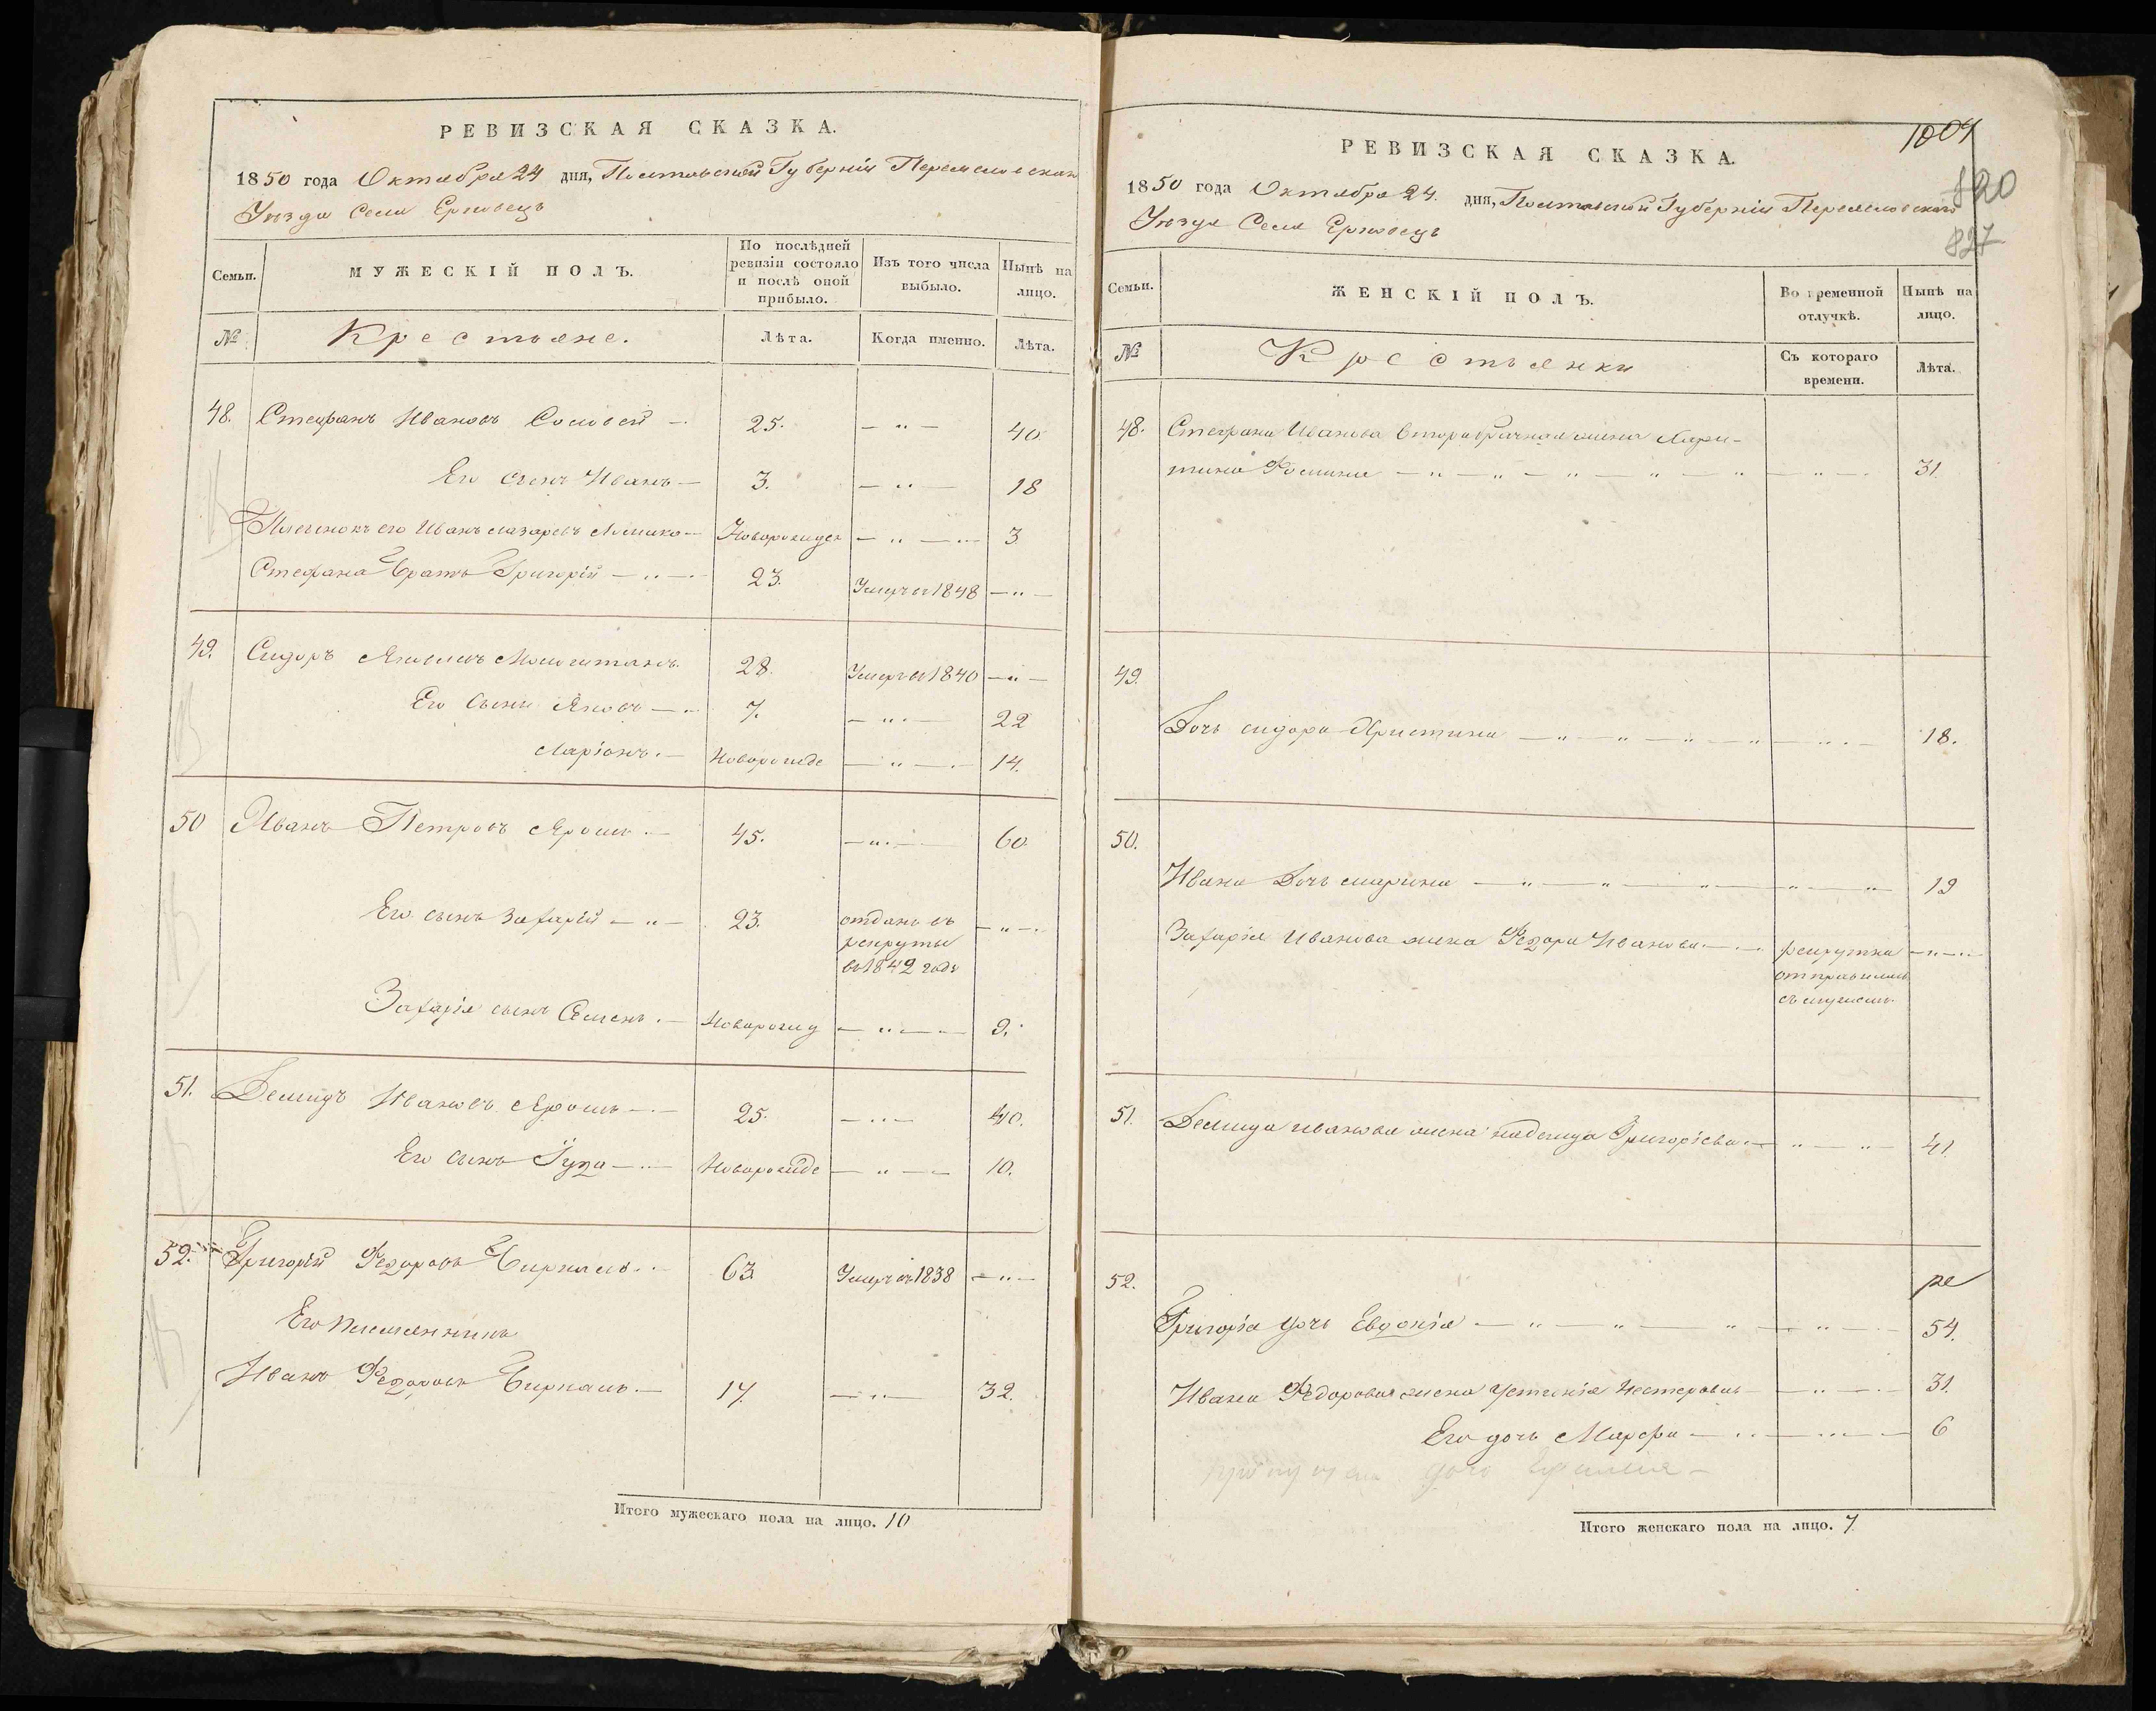 РЕВИЗСКАЯ СКАЗКА.
1850 года Октября 24 дня, Полтавской Губерніи Переяславскаго
Уѣзда Села Ерковецъ
Семьи.
МУЖЕСКІЙ ПОЛЪ.
По послѣдней ревизіи состояло и послѣ оной прибыло.
Изъ того числа выбыло.
Нынѣ на лицо.
№
Крестьяне.
Лѣта.
Когда именно.
Лѣта.
48. Стефанъ Ивановъ Соловей 25. — „ — 40
Его сынъ Иванъ — 3. — „ — 18
его Иванъ Лазаревъ Новорожден — „ — 3
Стефана братъ Григорій — „ — 23. Умеръ въ 1848 — „ —
49. Сидоръ Яковлевъ 28. Умеръ въ 1840 — „ —
Его сыны Яковъ — 7. — „ — 22
Ларіонъ. — Новорожде — „ — 14.
50 Иванъ Петровъ Ярошъ — 45. — „ — 60
Его сынъ Захарій — „ — 23. отданъ въ — „ —
рекруты
въ 1842 годѣ
Захарія сынъ Семенъ. — Новорожд — „ — 9.
51. Демидъ Ивановъ Ярошъ — 25. — „ — 40.
Его сынъ Іуда — Новорожде — „ — 10.
52. Григорій Федоровъ 63 Умеръ въ 1838 — „ —
Его племянникъ
Иванъ Федоровъ 17. — „ — 32.
Итого мужескаго пола на лицо. 10
1004
820
827
РЕВИЗСКАЯ СКАЗКА.
1850 года Октября 24. дня, Полтавской Губерніи Переяславскаго
Уѣзда Села Ерковецъ
Семьи.
ЖЕНСКІЙ ПОЛЪ.
Во временной отлучкѣ.
Нынѣ на лицо.
№
Крестьянки
Съ котораго времени.
Лѣта.
48. Стефана Иванова второбрачная жена Хари-
тина Фомина — „ — „ — „ — „ — „ — „ — 31.
49.
Дочь Сидора Христина — „ — „ — „ — „ — „ — 18.
50.
Ивана дочь Марина — „ — „ — „ — „ — „ — 19
Захарія Иванова жена Федора Иванова — рекрутка — „ —
отправилась
съ мужемъ.
51. Демида Иванова жена Надежда Григорьева — „ — „ — 41
52.
ре
Григорія дочь Евдокія — „ — „ — „ — „ — 54.
Ивана Федорова жена Устинія Нестерова — „ — 31.
Его дочь Марфа — „ — „ — 6
Итого женскаго пола на лицо. 7